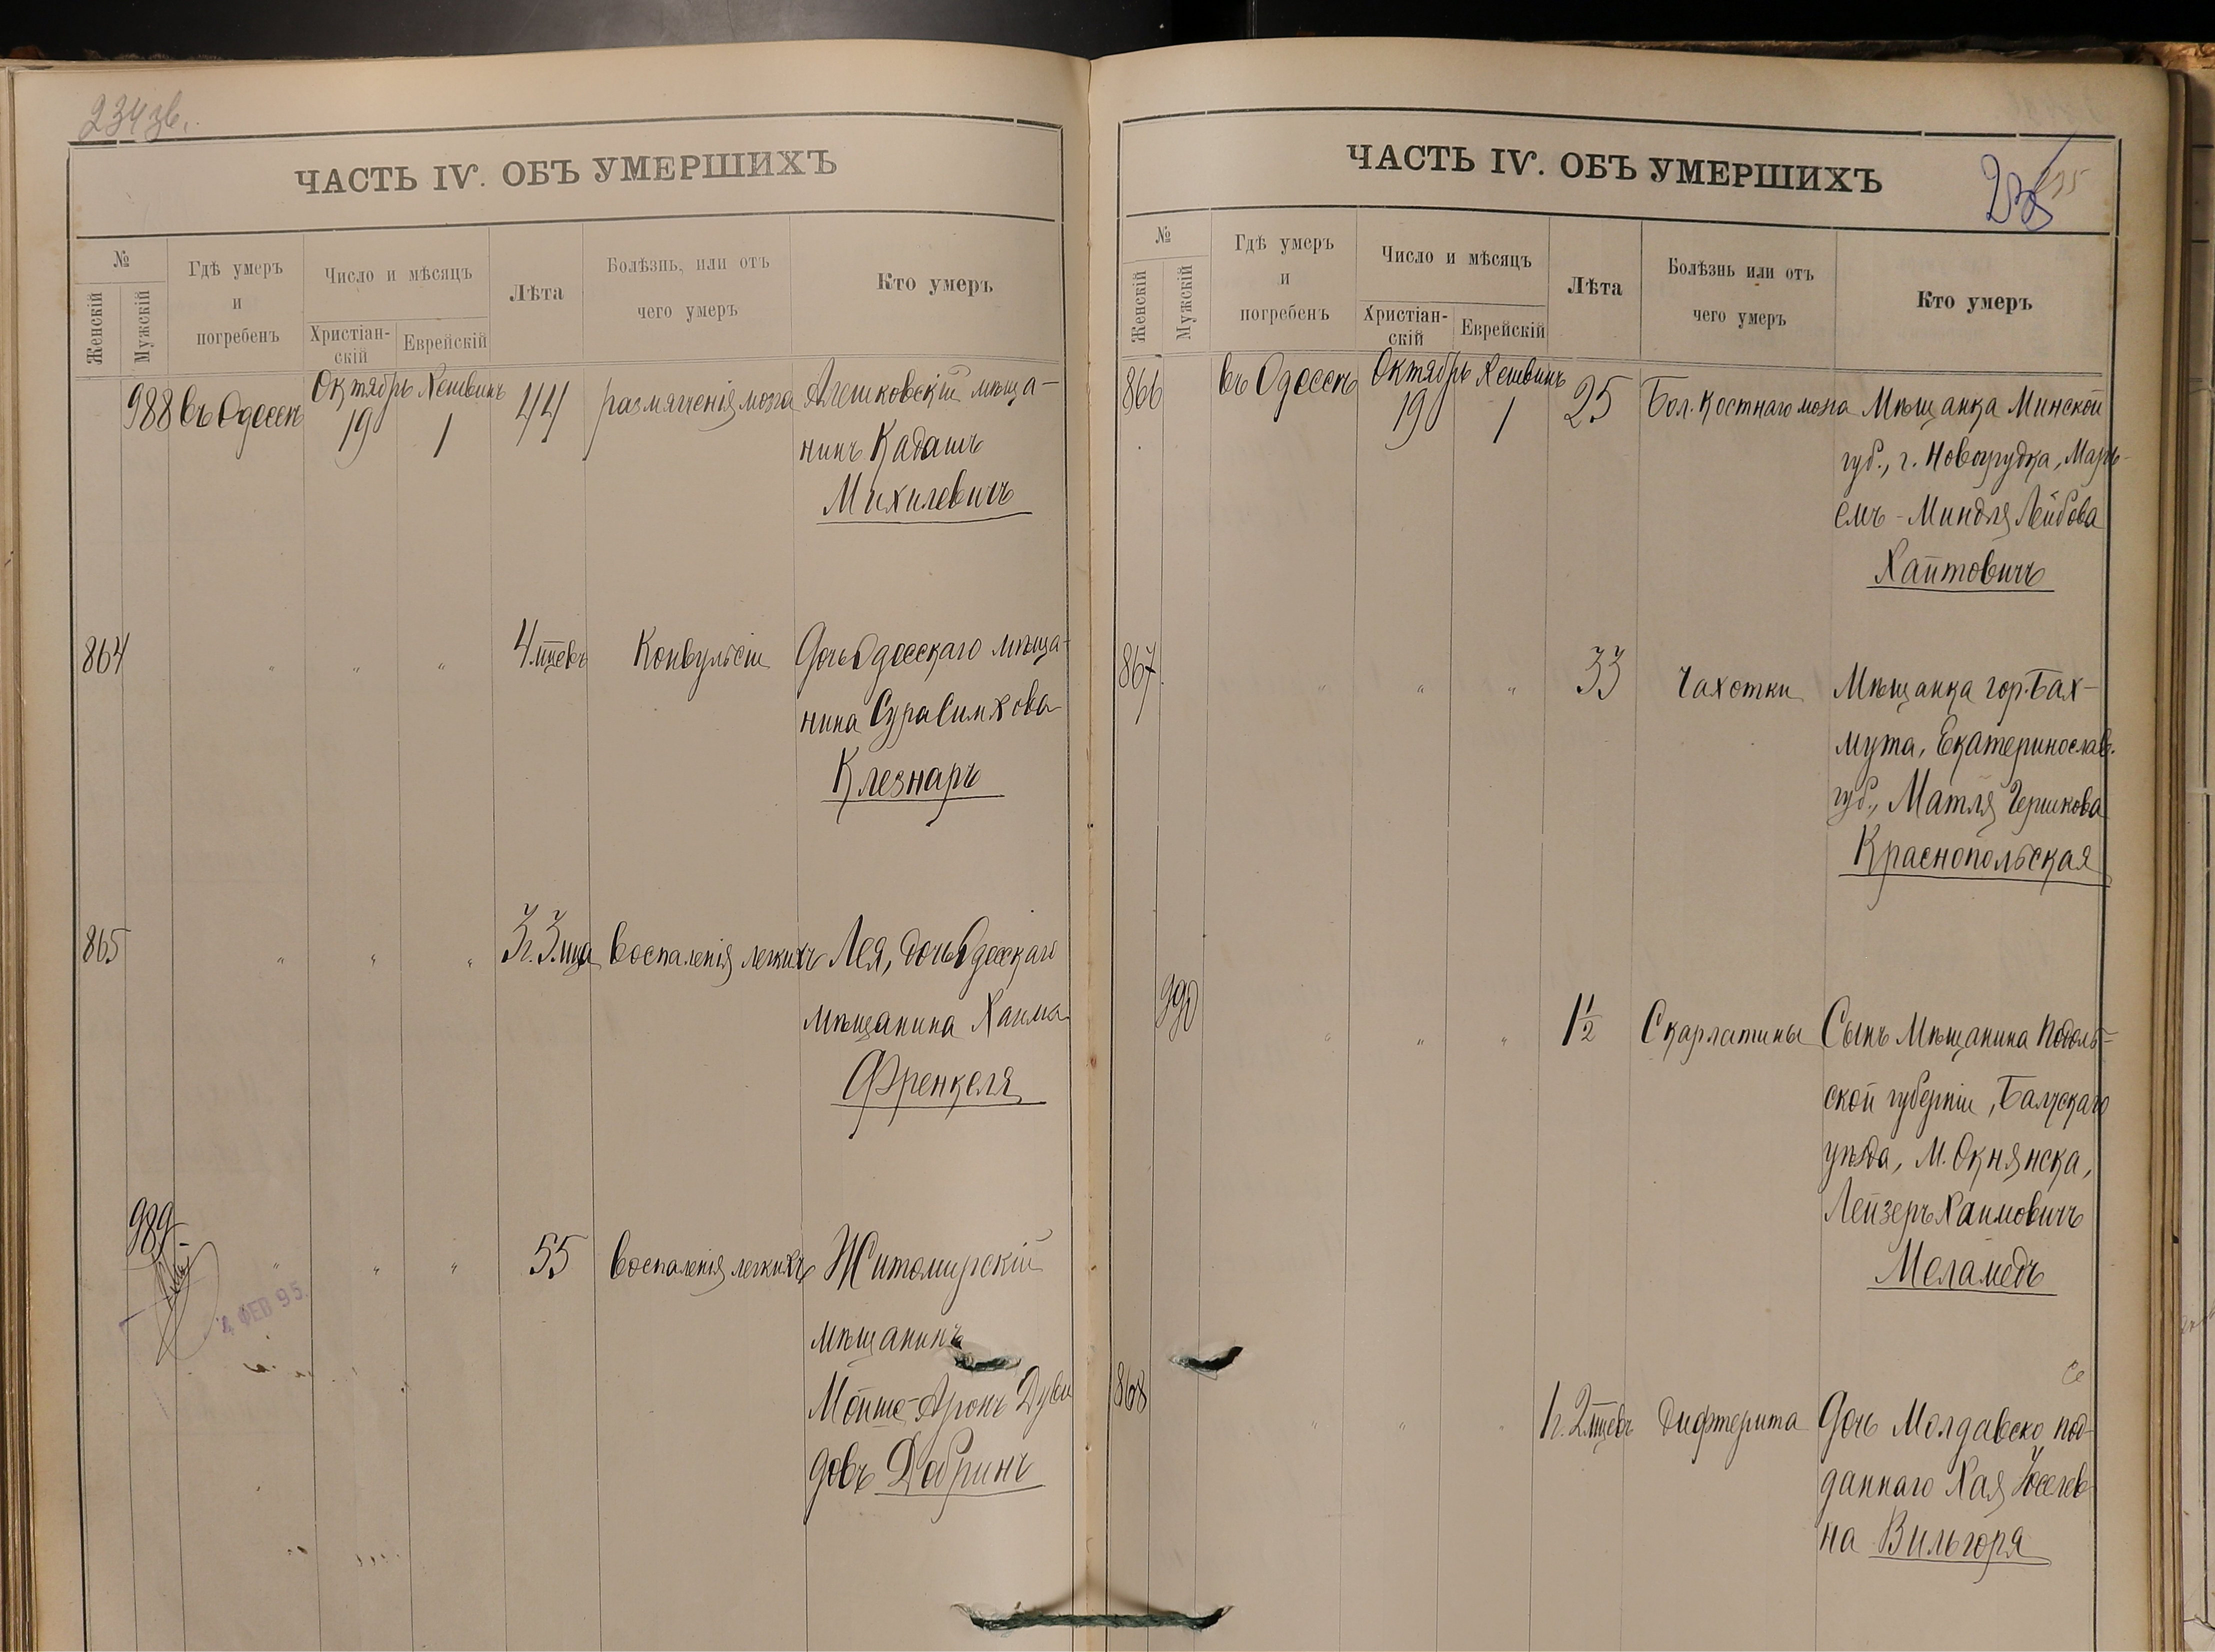 234 зв.
ЧАСТЬ IV. ОБЪ УМЕРШИХЪ
№
Женскій
Мужскій
Гдѣ умеръ
и
погребенъ
Число и мѣсяцъ
Христіан-
скій
Еврейскій
Лѣта
Болѣзнь, или отъ
чего умеръ
Кто умеръ
988 въ Одессѣ Октябрь 19 Хешвинъ 1 44 размягченія мозга Алешковскій мѣща-
нинъ Кадишъ
Михилевичъ
864 " " " 4 мцевъ Конвульсіи Дочь Одесскаго мѣща-
нина Сура Симхова
Клезнаръ
865 " " " 3 г. 3 мца Воспаленія легкихъ Лея, дочь Одесскаго
мѣщанина Хаима
Френкеля
989 " " " 55 Воспаленія легкихъ Житомирскій
мѣщанинъ
Мойше-Аронъ Дуви
довъ Добринъ
4 ФЕВ 95.
ЧАСТЬ IV. ОБЪ УМЕРШИХЪ
235
№
Женскій
Мужскій
Гдѣ умеръ
и
погребенъ
Число и мѣсяцъ
Христіан-
скій
Еврейскій
Лѣта
Болѣзнь или отъ
чего умеръ
Кто умеръ
866 въ Одессѣ Октябрь 19 Хешвинъ 1 25 Бол. Костнаго мозга Мѣщанка Минской
губ., г. Новогрудка, Марь-
емъ-Миндля Лейбова
Хаитовичъ
867 " " " 33 Чахотки Мѣщанка гор. Бах-
мута, Екатеринослав.
губ., Матля Гершкова
Краснопольская
990 " " " 1½ Скарлатины Сынъ Мѣщанина Подоль-
ской губерніи, Балтскаго
уѣзда, М. Окнянска,
Лейзеръ Хаимовичъ
Меламедъ
868 " " " 1 г. 2 мцевъ Дифтерита Дочь Молдавско под-
даннаго Хая Юселев
на Вильгоря